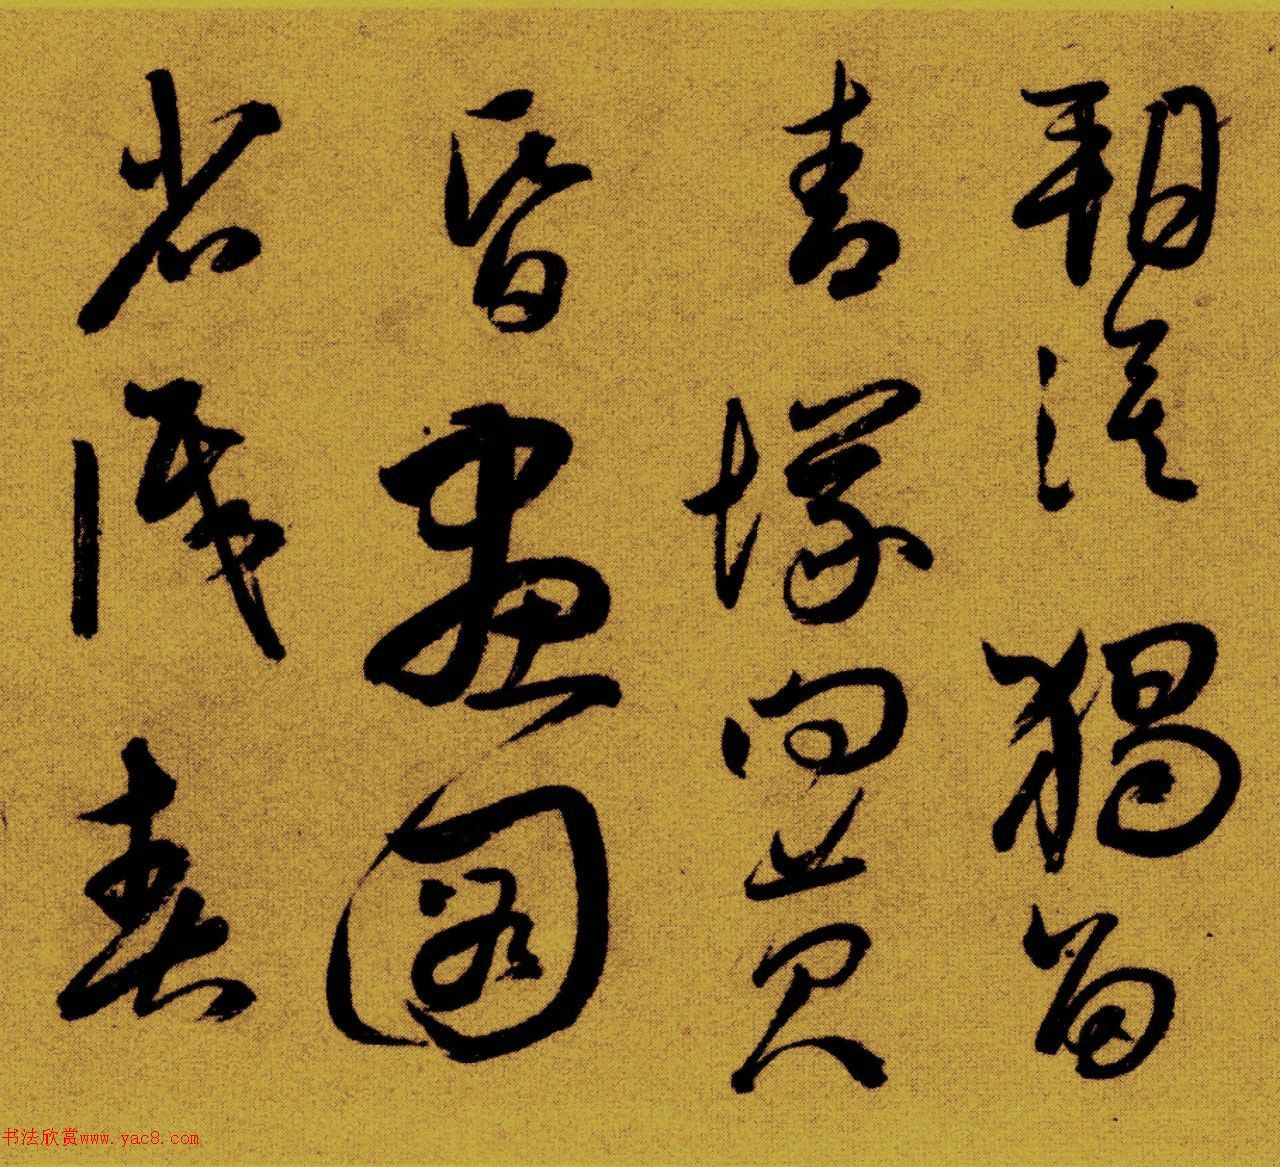 朔漠獨留
青塚向黃
昏畫圖
省識春
书法欣赏www.yac8.com